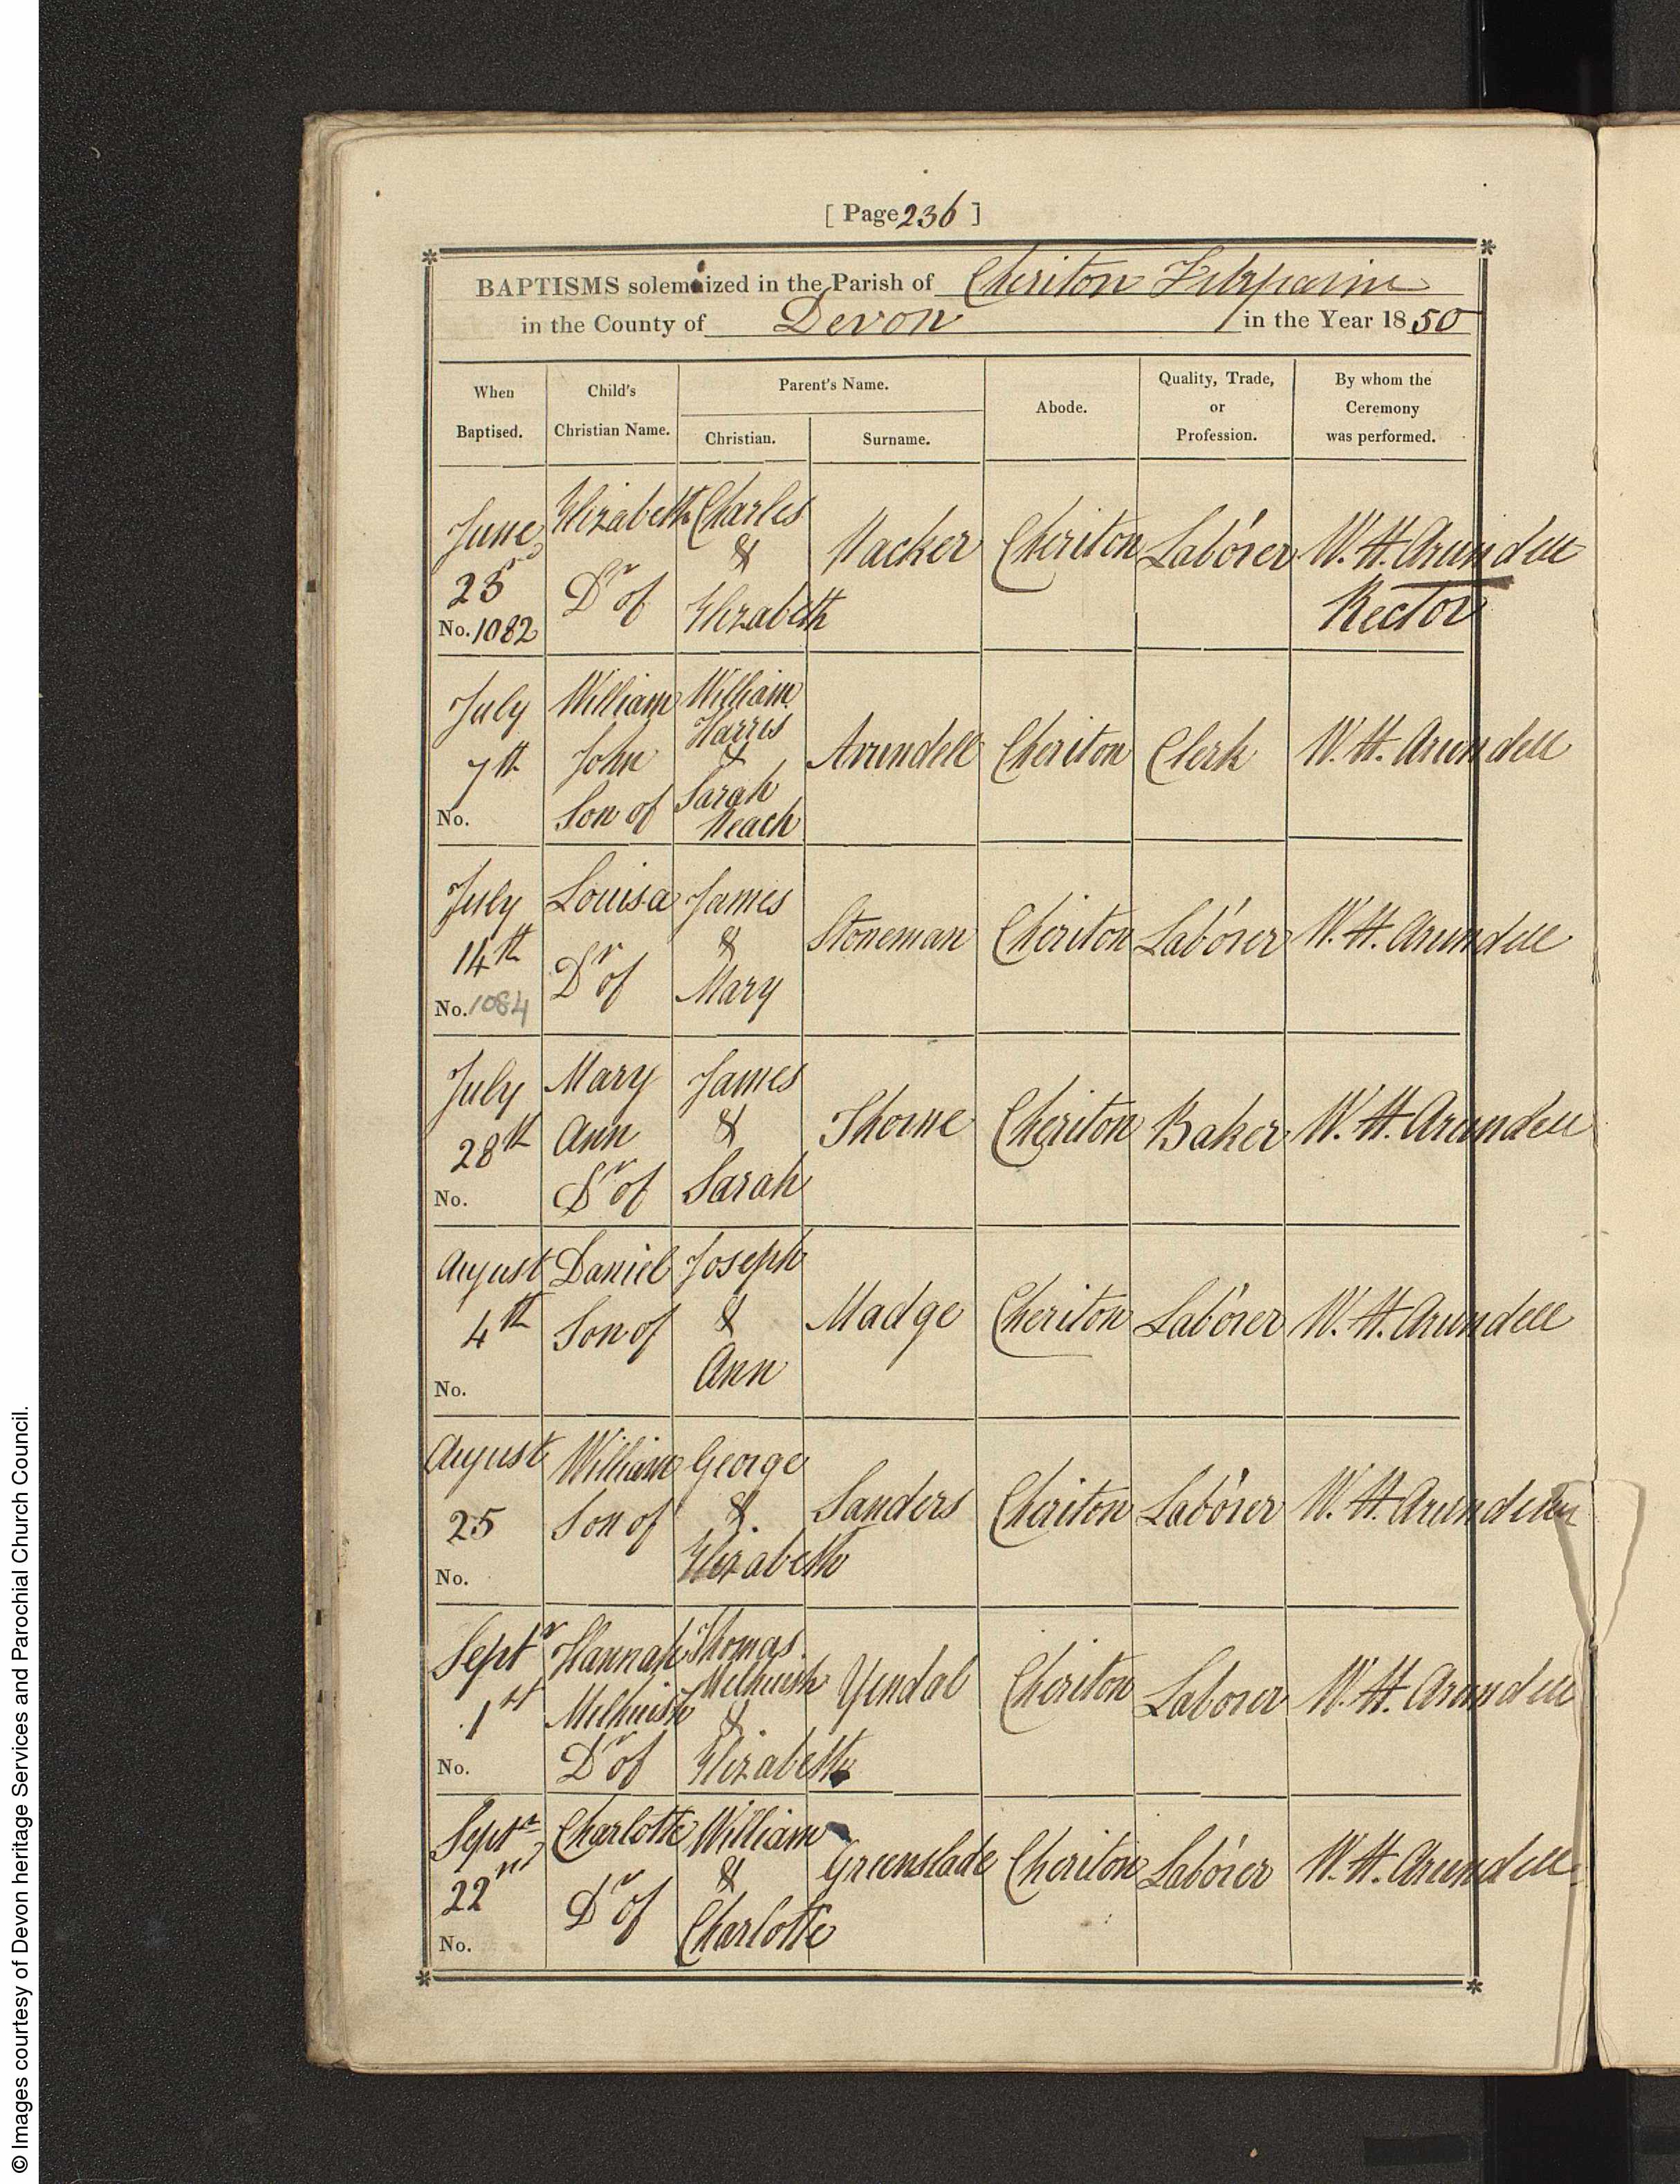 [ Page 236 ]
BAPTISMS solemnized in the Parish of Cheriton Fitzpaine
in the County of Devon in the Year 1850
When Baptised. Child's Christian Name. Parent's Name. Christian. Surname. Abode. Quality, Trade, or Profession. By whom the Ceremony was performed.
June Elizabeth Charles
& Hacker Cheriton Laborer W. H. Arundell
23rd Dr of Elizabeth Rector
No. 1082
July William William
Harris
7th John & Arundell Cheriton Clerk W. H. Arundell
Sarah
No. Son of Neach
July Louisa James
14th & Stoneman Cheriton Laborer W. H. Arundell
Dr of Mary
No. 1084
July Mary James
28th Ann & Thorne Cheriton Baker W. H. Arundell
No. Dr of Sarah
August Daniel Joseph
4th Son of & Madge Cheriton Laborer W. H. Arundell
Ann
No.
August William George
25 Son of & Sanders Cheriton Laborer W. H. Arundell
Elizabeth
No.
Septr Hannah Thomas
Melhuish
1st Melhuish & Yendal Cheriton Laborer W. H. Arundell
No. Dr of Elizabeth
Septr Charlotte William
22nd & Greenslade Cheriton Laborer W. H. Arundell
Dr of Charlotte
No.
© Images courtesy of Devon heritage Services and Parochial Church Council.